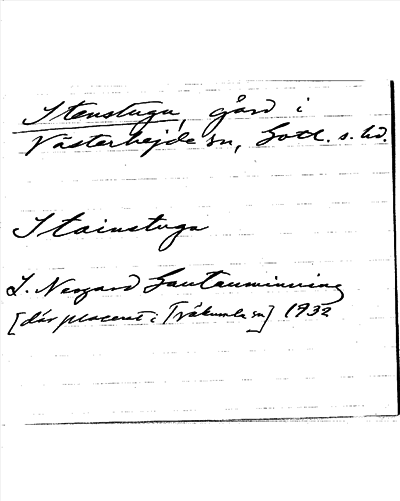 Stenstugu, gård i
Västerhejde sn, Gotl. s. hd.
Stainstugu
I. Nergård Gautauminning
[där placerat i Träkumla sn] 1932